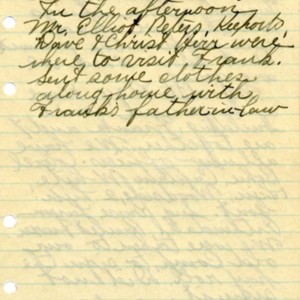 In the afternoon
Mr. Elliot, Peters, Ruports,
Dave & Christ Herr were
here to visit Frank.
Sent some clothes
along home with
Frank's father-in-law